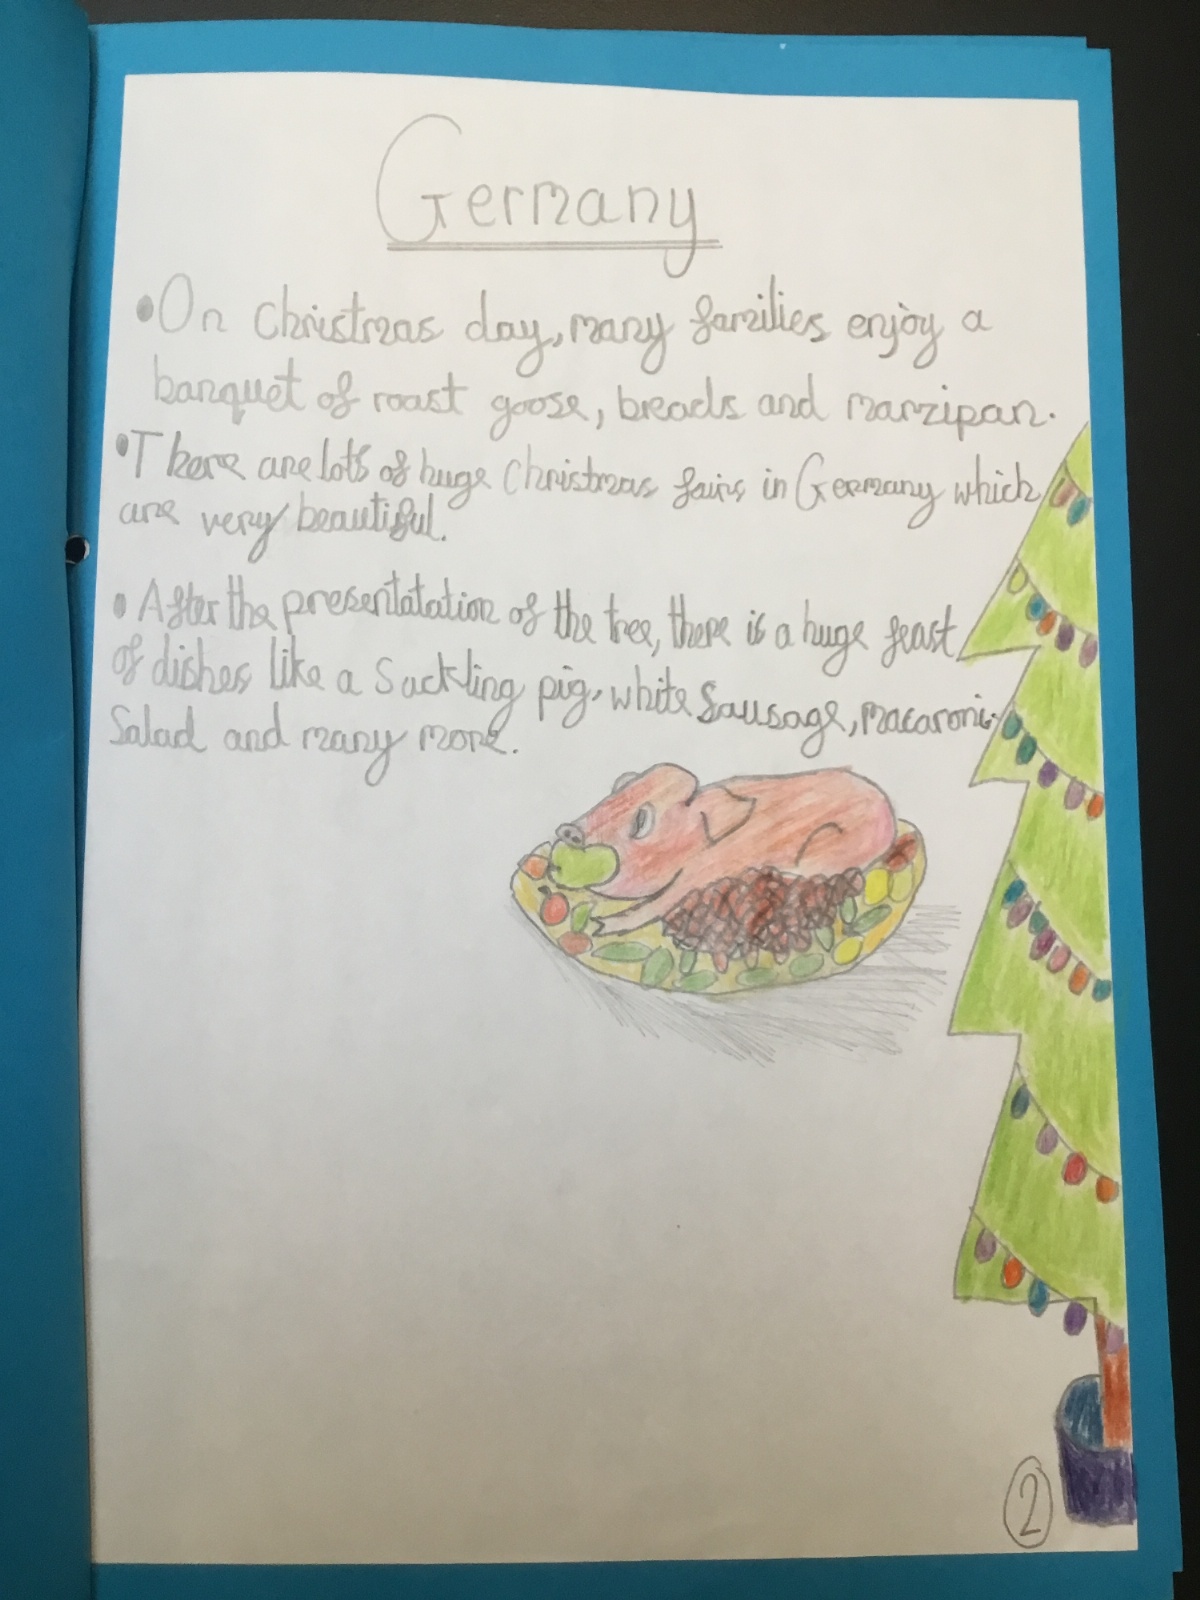 Germany
•On Christmas day, many families enjoy a
banquet of roast goose, breads and marzipan.
•There are lots of huge Christmas fairs in Germany which
are very beautiful.
• After the presentatation of the tree, there is a huge feast
of dishes like a Suckling pig, white Sausage, macaroni
Salad and many more.
2